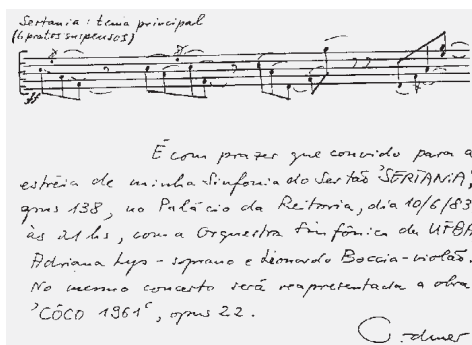 Sertania: tema principal
(6 pratos suspensos)
ff
É com prazer que convido para a
estréia de minha Sinfonia do Sertão 'SERTANIA',
opus 138, no Palácio da Reitoria, dia 10/6/83
às 21 hs, com a Orquestra Sinfônica da UFBA
Adriana Lys - soprano e Leonardo Boccia - violão.
No mesmo concerto será reapresentada a obra
'CÔCO 1961', opus 22.